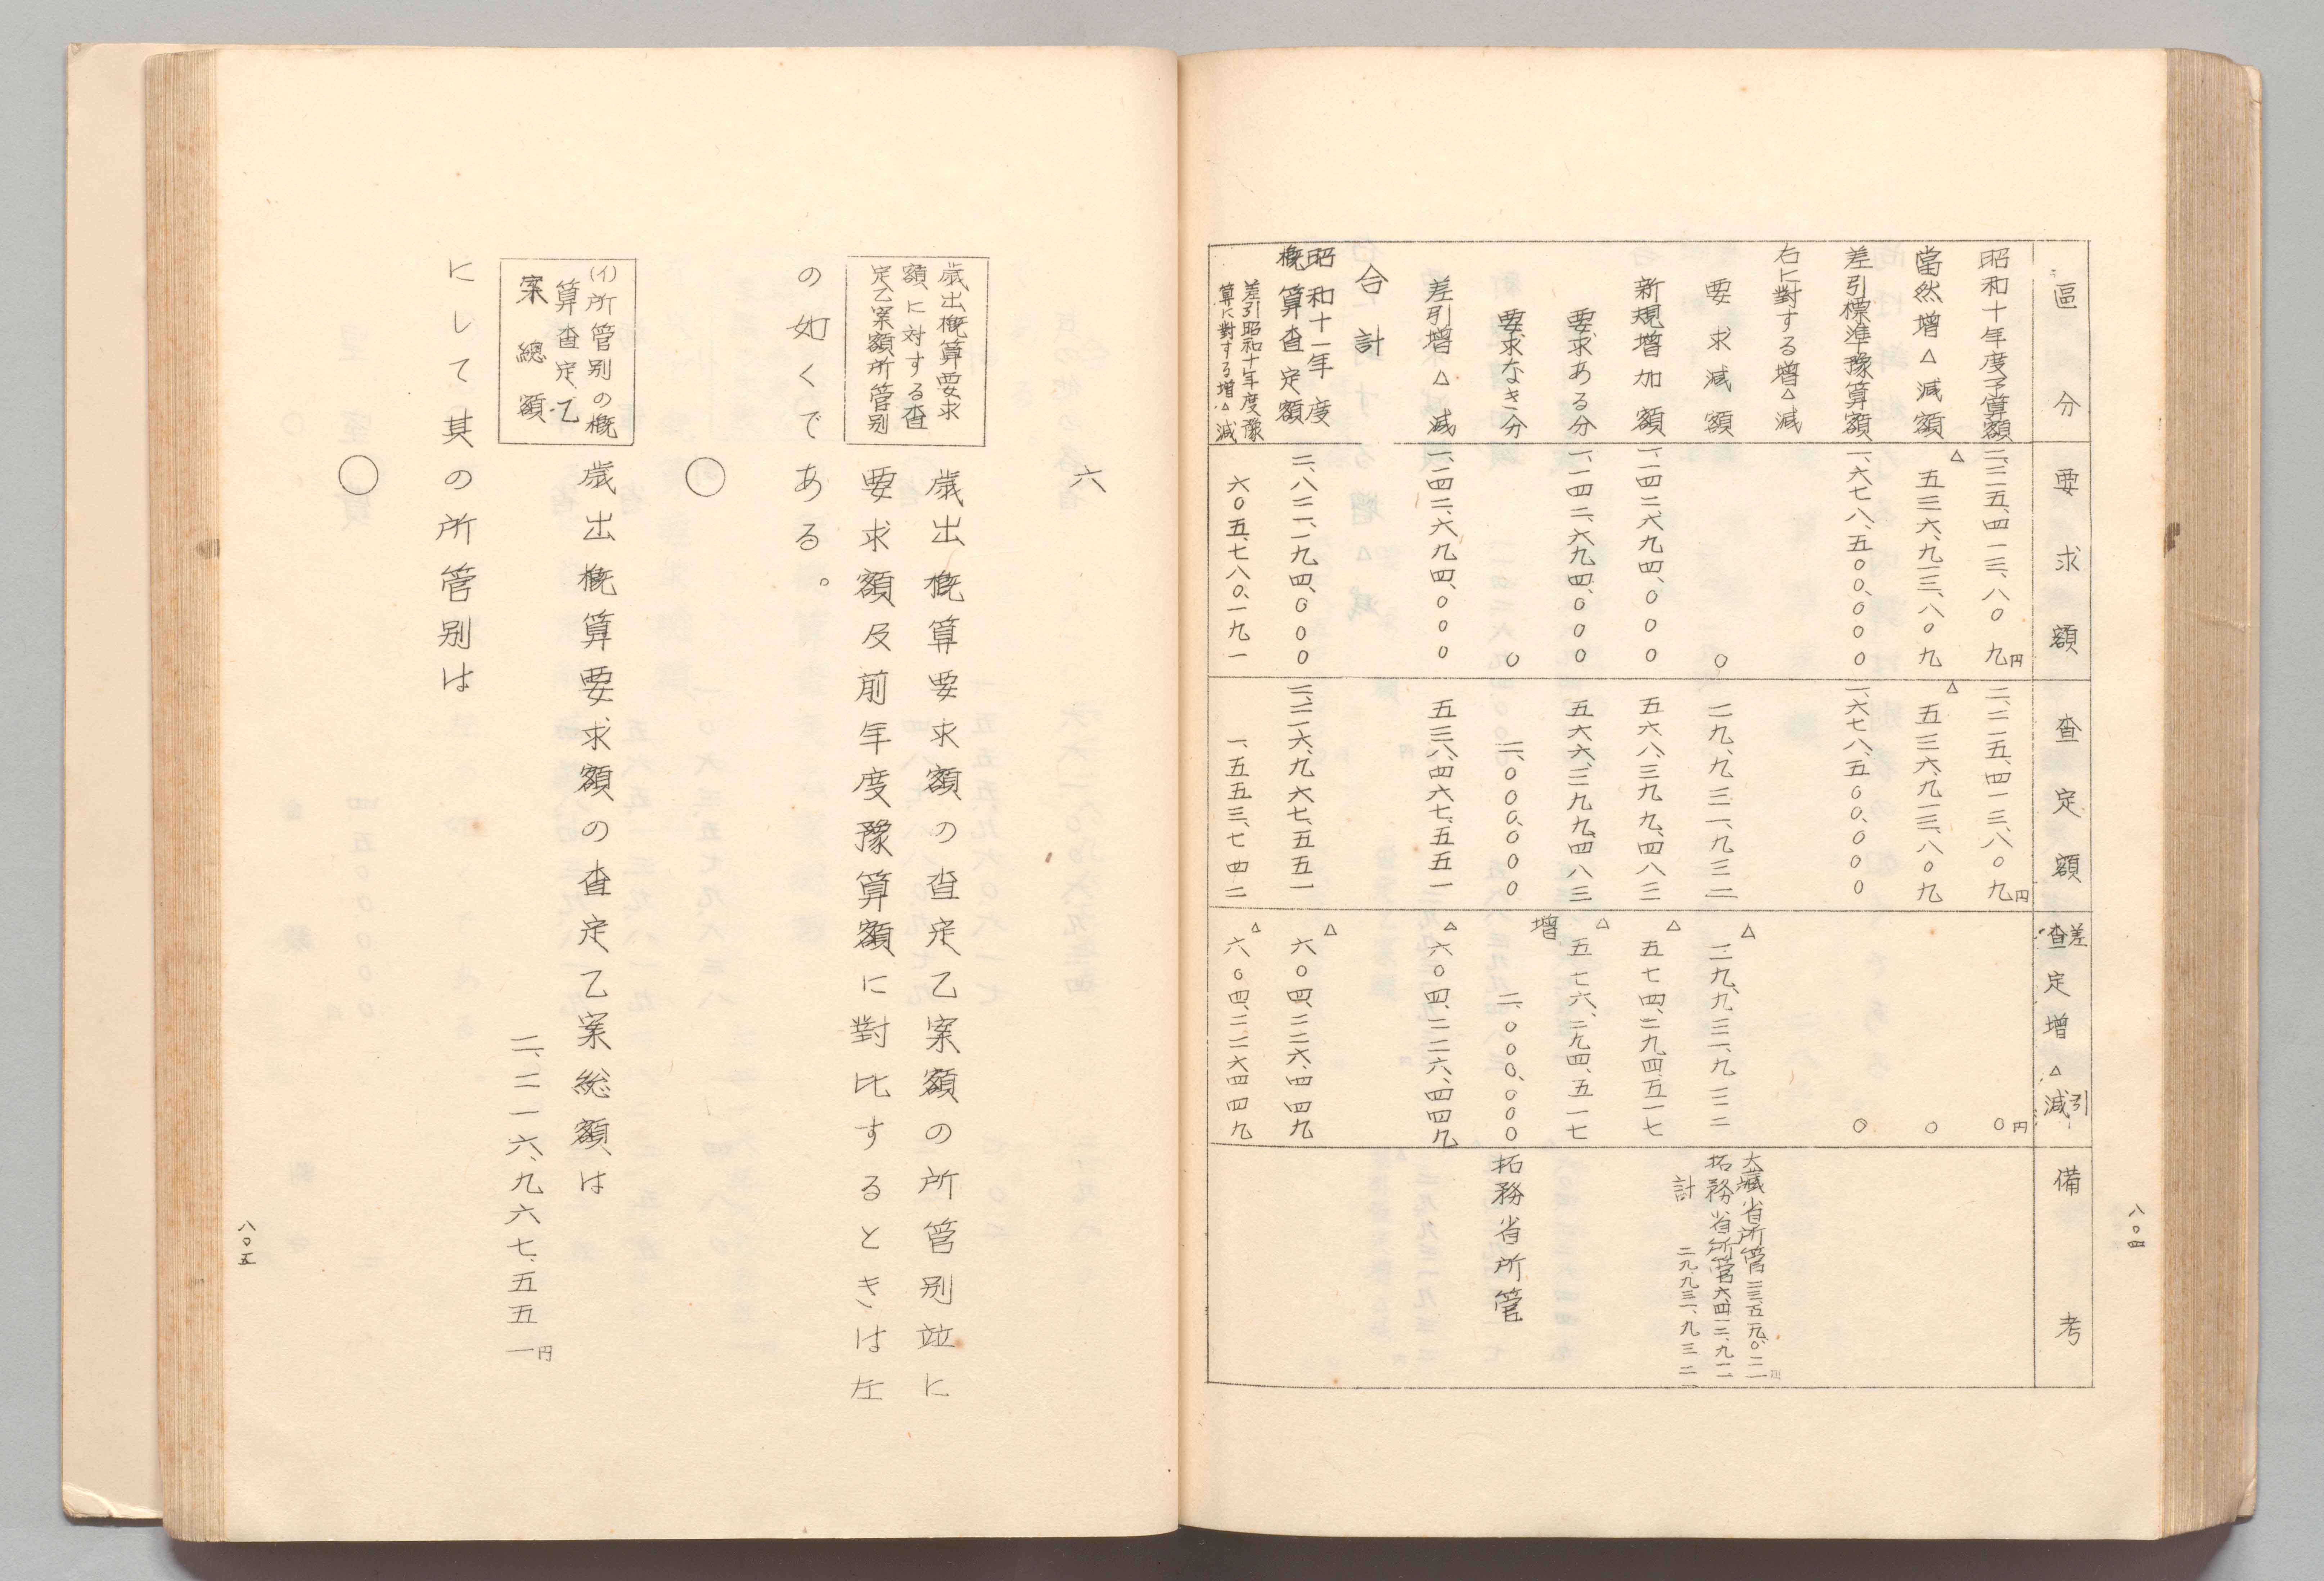 八〇四
區分
要求額
査定額
差引
査定増△減
備考
昭和十年度予算額
二、二一五、四一三、八〇九円
二、二一五、四一三、八〇九円
〇円
當然増△減額
△五三六、九一三、八〇九
△五三六、九一三、八〇九
〇
差引標準豫算額
一、六七八、五〇〇、〇〇〇
一、六七八、五〇〇、〇〇〇
〇
右に對する増△減
要求減額
〇
二九、九三一、九三二
△二九、九三一、九三二
大藏省所管二三、五一九、〇二一円
拓務省所管六、四一二、九一一
計二九、九三一、九三二
新規増加額
一、一四二、六九四、〇〇〇
五六八、三九九、四八三
△五七四、二九四、五一七
要求ある分
一、一四二、六九四、〇〇〇
五六六、三九九、四八三
△五七六、二九四、五一七
要求なき分
〇
二、〇〇〇、〇〇〇
増二、〇〇〇、〇〇〇
拓務省所管
差引増△減
一、一四二、六九四、〇〇〇
五三八、四六七、五五一
△六〇四、二二六、四四九
合計
昭和十一年度
概算査定額
二、八二一、一九四、〇〇〇
二、二一六、九六七、五五一
△六〇四、二二六、四四九
差引昭和十年度豫
算に對する増△減
六〇五、七八〇、一九一
一、五五三、七四二
△六〇四、二二六、四四九
六
歳出概算要求
額に対する査
定乙案額所管別
歳出概算要求額の査定乙案額の所管別竝に
要求額及前年度豫算額に對比するときは左
の如くである。
〇
(イ)所管別の概
算査定乙
案總額
歳出概算要求額の査定乙案総額は
二、二一六、九六七、五五一円
にして其の所管別は
〇
八〇五